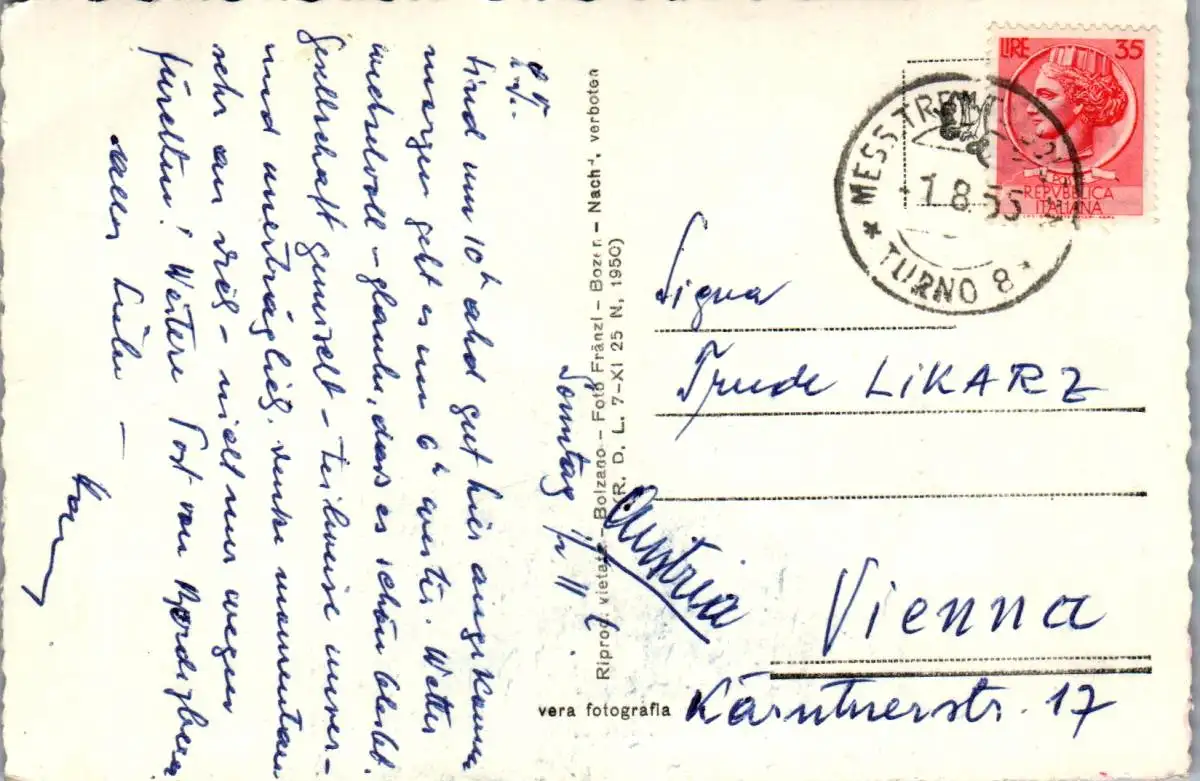 Sonntag ½ 11
sind um 10ʰ abd gut hier angekomm
morgen geht es um 6ʰ weiter. Wetter
wechselvoll – glaube, dass es schön bleibt.
Gesellschaft gemischt – teilweise
und unerträglich, denke momentan
sehr an Dich – nicht nur wegen
! Weitere Post von
allen Lieben –
Riprod. vietata – Bolzano – Foto Fränzl – Bozen – Nachd. verboten
(R. D. L. 7-XI 25 N, 1950)
vera fotografia
LIRE 35
REPVBBLICA
ITALIANA
MESS.TRENT
-1.8.55
* TURNO 8 *
Signa
Trude LiKARZ
Austria
Vienna
Kärntnerstr. 17